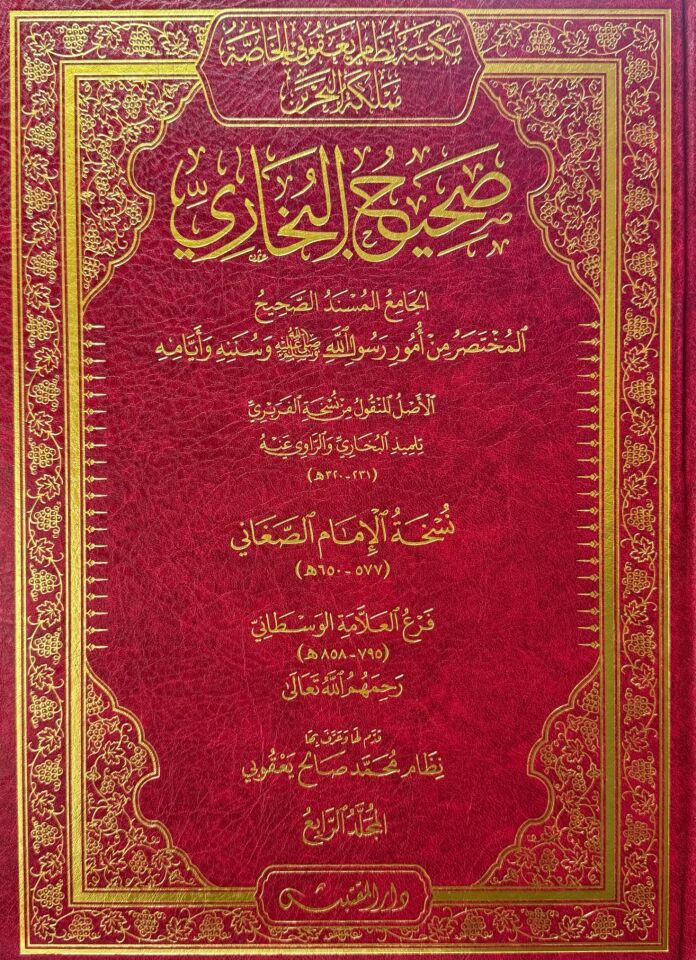 مكتبة نظام يعقوبي الخاصة
مملكة البحرين
صَحِيحُ البُخَارِيِّ
الجَامِعُ المُسْنَدُ الصَّحِيحُ
المُخْتَصَرُ مِنْ أُمُورِ رَسُولِ اللَّهِ ﷺ وَسُنَنِهِ وَأَيَّامِهِ
الأَصْلُ المَنْقُولُ مِنْ نُسْخَةِ الفَرَبْرِيِّ
تِلْمِيذِ البُخَارِيِّ وَالرَّاوِي عَنْهُ
(٢٣١-٣٢٠هـ)
نُسْخَةُ الإِمَامِ الصَّغَانِي
(٥٧٧-٦٥٠هـ)
فَرْعُ العَلَّامَةِ الوَسْطَانِيِّ
(٧٩٥-٨٥٨هـ)
رَحِمَهُمُ اللَّهُ تَعَالَى
قدّم لها وعرّف بها
نِظَام مُحَمَّد صَالِح يَعْقُوبِي
المُجَلَّدُ الرَّابِعُ
دار المقتبس